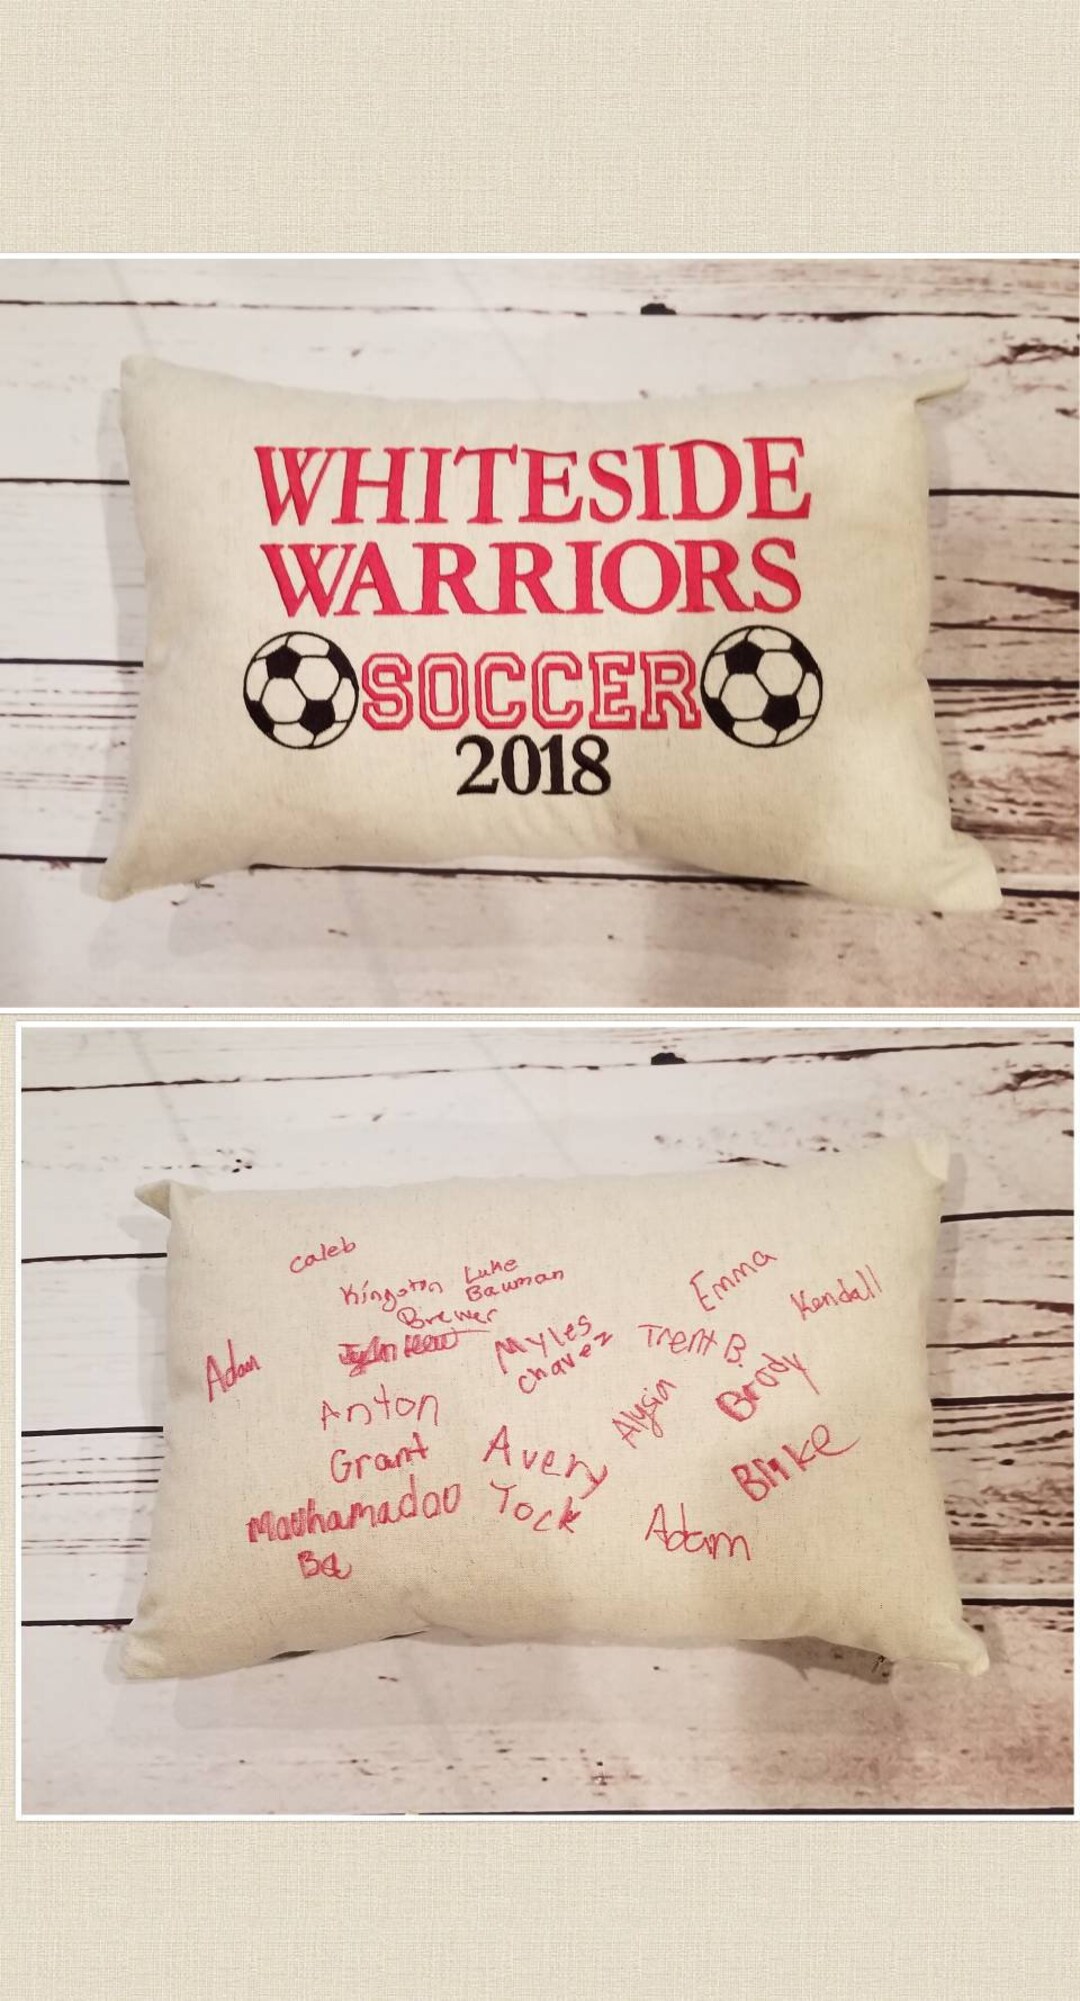 WHITESIDE
WARRIORS
SOCCER
2018
caleb
Kingston
Brewer
Luke
Bauman
Emma
Kendall
Adam
Myles
chavez
Trent B.
Brody
Anton
Alysin
Grant
Avery
Yock
Blake
Mouhamadou
Ba
Adam